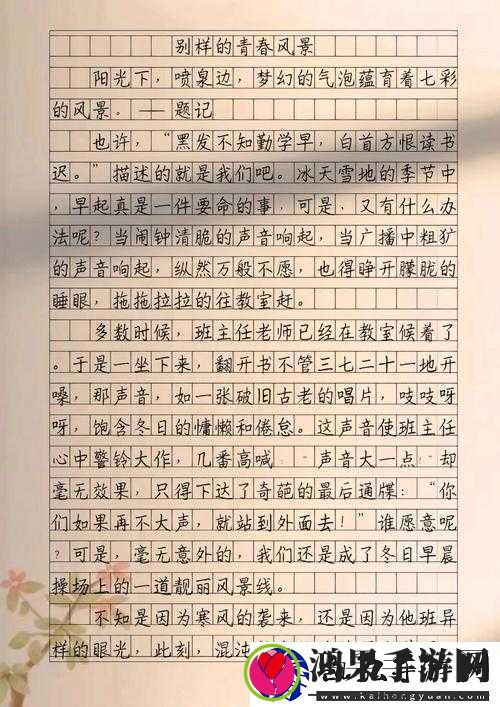 别样的青春风景
阳光下，喷泉边，梦幻的气泡蕴育着七彩
的风景。——题记
也许，“黑发不知勤学早，白首方恨读书
迟。”描述的就是我们吧。冰天雪地的季节中
，早起真是一件要命的事，可是，又有什么办
法呢？当闹钟清脆的声音响起，当广播中粗犷
的声音响起，纵然万般不愿，也得睁开朦胧的
睡眼，拖拖拉拉的往教室赶。
多数时候，班主任老师已经在教室候着了
。于是一坐下来，翻开书不管三七二十一地开
嗓，那声音，如一张破旧古老的唱片，吱吱呀
呀，饱含冬日的慵懒和倦怠。这声音使班主任
心中警铃大作，几番高喊 声音大一点 却
毫无效果，只得下达了奇葩的最后通牒：“你
们如果再不大声，就站到外面去！”谁愿意呢
？可是，毫无意外的，我们还是成了冬日早晨
操场上的一道靓丽风景线。
不知是因为寒风的袭来，还是因为他班异
样的眼光，此刻，混沌
鸿九手游网
www.kaihongyuan.com